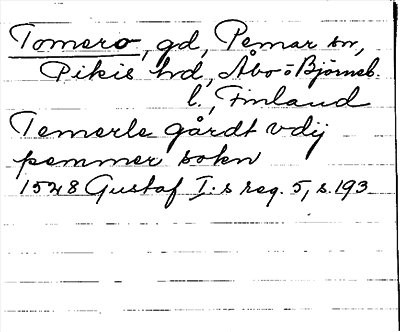 Tomero, gd, Pemar sn,
Pikis hd, Åbo o Björneb.
l., Finland
Temerle gårdt vdij
pemmer sokn
1548 Gustaf I:s reg. 5, s. 193